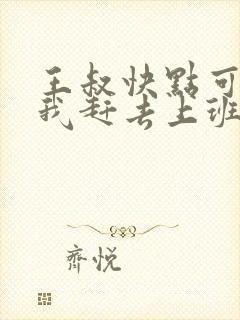 王叔快點可
我赶去上班
齊悅